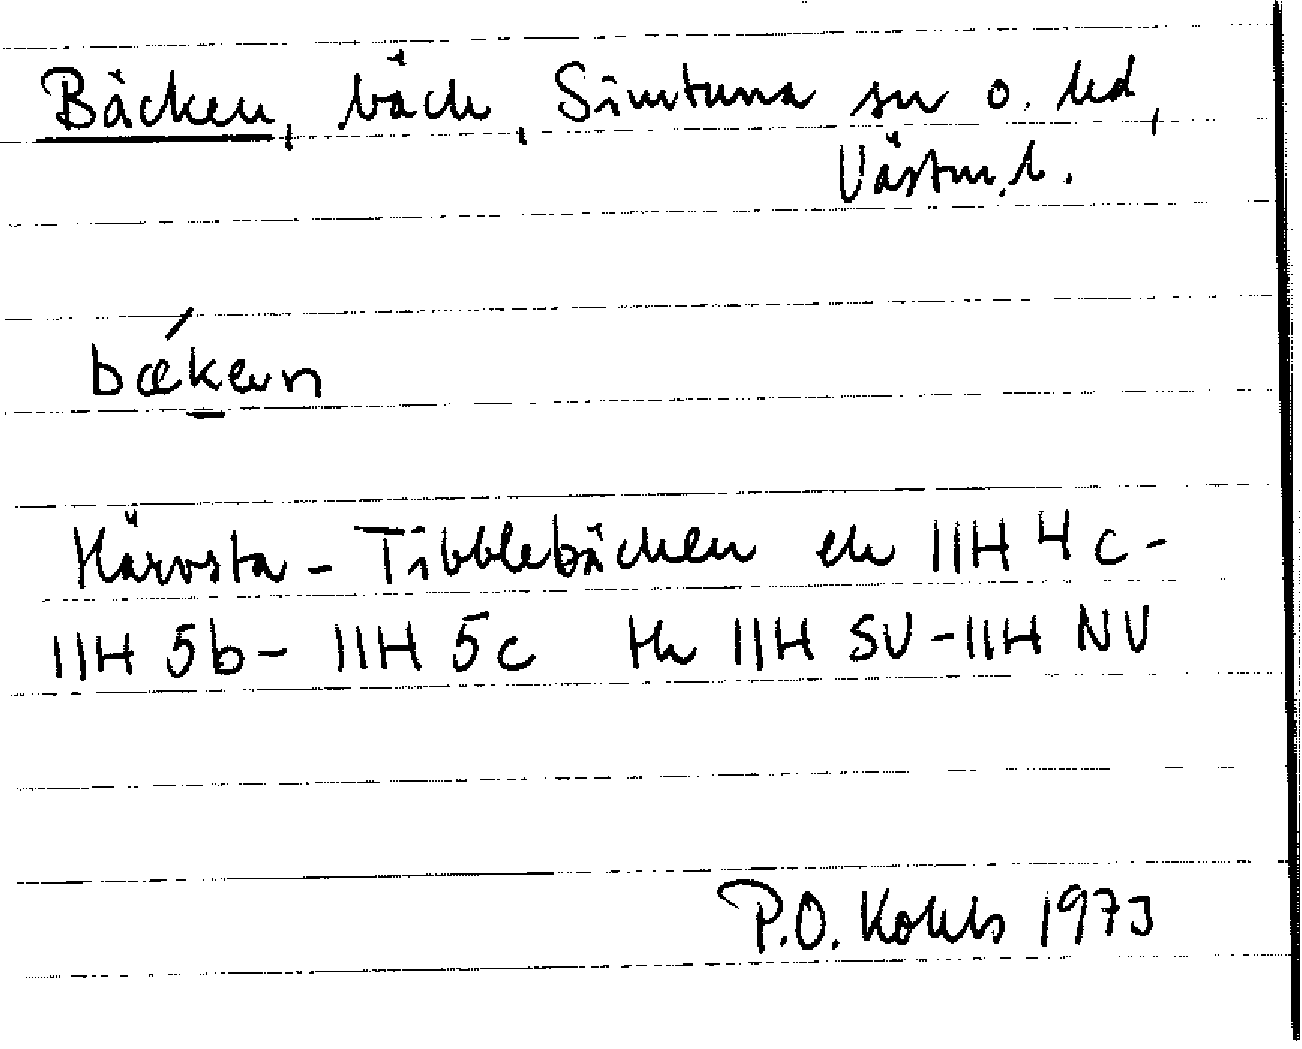 Bäcken, bäck, Simtuna sn o. hd,
Västm. l.
bǽken
Härvsta - Tibblebäcken ek 11H 4c-
11H 5b- 11H 5c tk 11H SV-11H NV
P.O. 1973